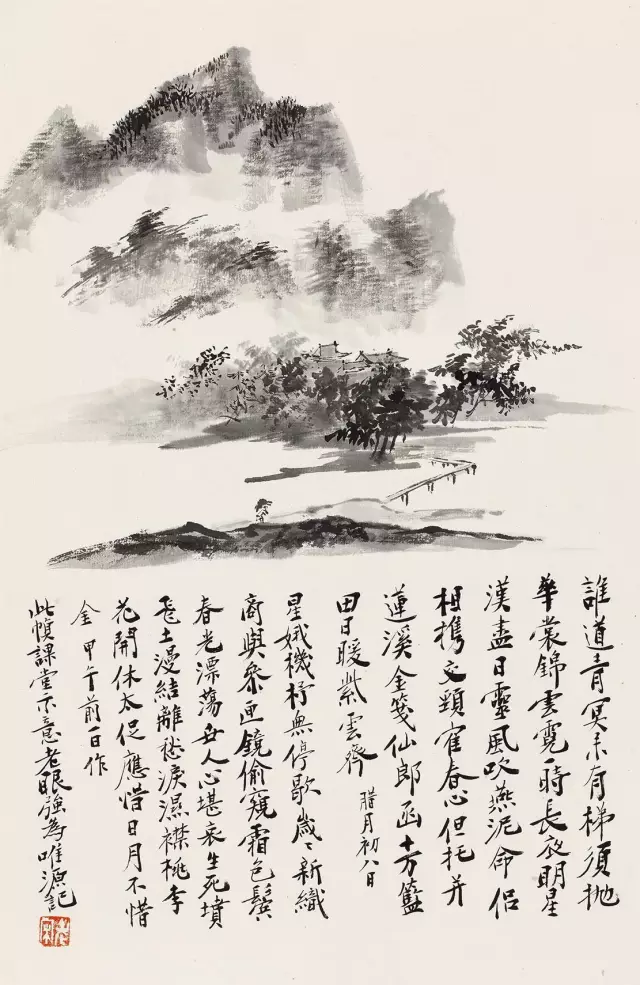 誰道青冥未有梯須拋
華裳錦雲霓一時長夜明星
漢盡日靈風吹燕泥命侶
相攜交頸宿春心但托并
蓮溪金箋仙郎函十万籃
田日暖紫雲齊 腊月初八日
星娥機杼無停歇歲々新織
商與參匣鏡偷窺霜色鬢
春光漂蕩丗人心堪哀生死墳
土漫結離愁淚濕襟桃李
花開休太促應惜日月不惜
金 甲午前一日作
此幀課堂示意老眼强為唯源記